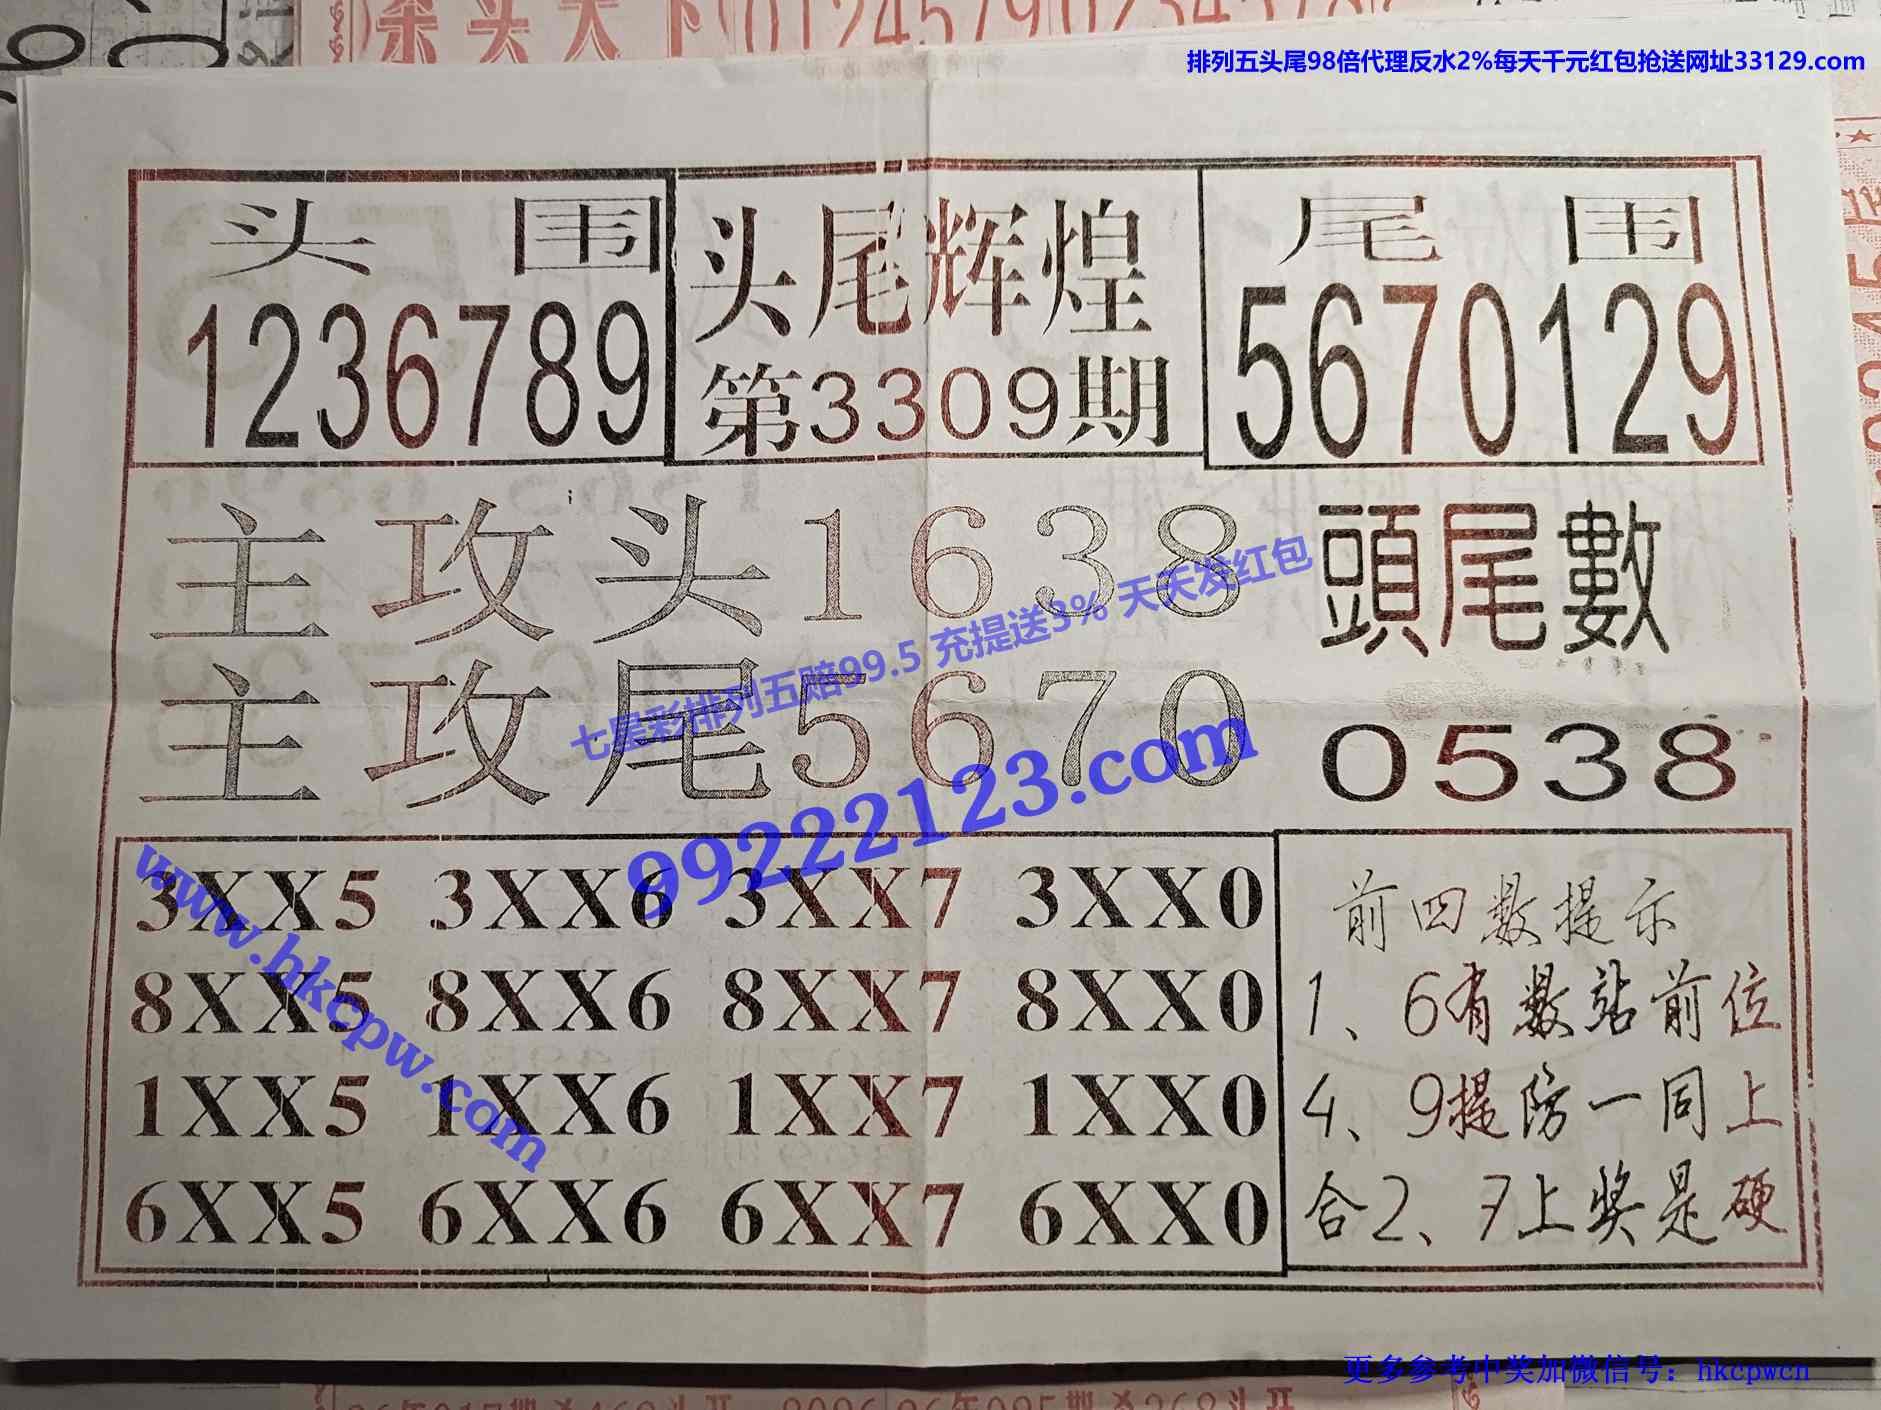 杀头天下0124579023457
排列五头尾98倍代理反水2%每天千元红包抢送网址33129.com
头围
1236789
头尾辉煌
第3309期
尾围
5670129
主攻头1638
主攻尾5670
頭尾數
0538
七星彩排列五赔99.5 充提送3% 天天发红包
99222123.com
www.hkcpw.com
3XX5 3XX6 3XX7 3XX0
8XX5 8XX6 8XX7 8XX0
1XX5 1XX6 1XX7 1XX0
6XX5 6XX6 6XX7 6XX0
前四数提示
1、6有数站前位
4、9提防一同上
合2、7上奖是硬
更多参考中奖加微信号：hkcpwcn